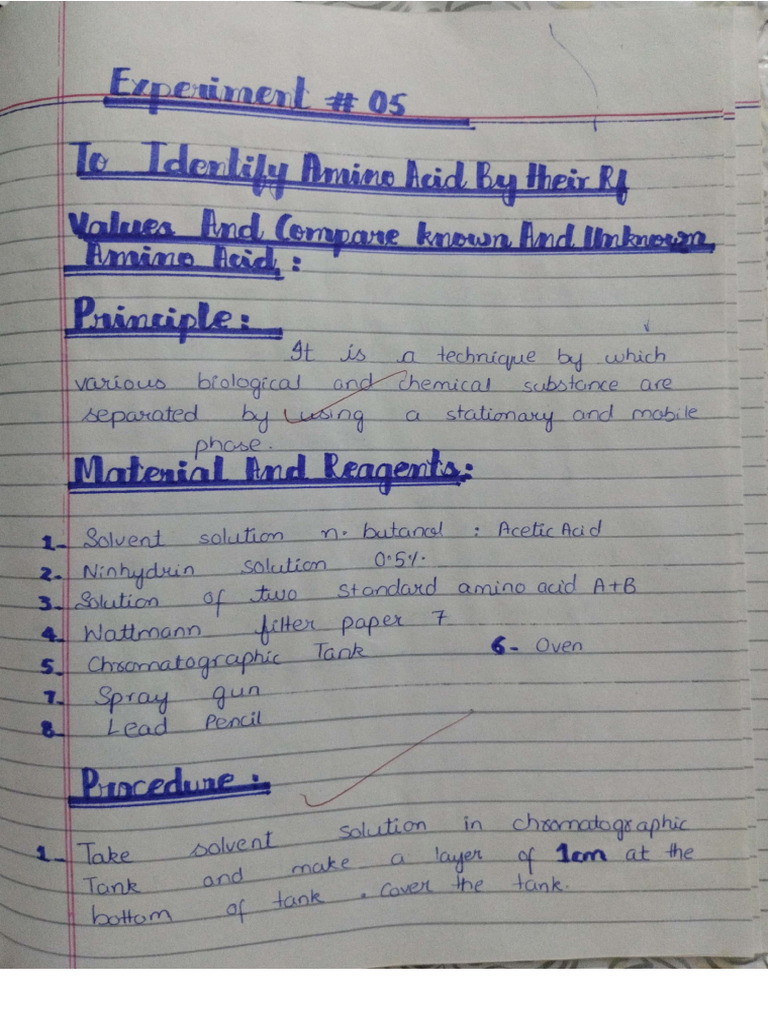 Experiment # 05
To Identify Amino Acid By their Rf
Values And Compare Known And Unknown
Amino Acid :
Principle :
It is a technique by which
various biological and chemical substance are
separated by using a stationary and mobile
phase.
Material And Reagents :
1- Solvent solution n. butanol : Acetic Acid
2- Ninhydrin solution 0.5%.
3- Solution of two standard amino acid A+B
4- Wattmann filter paper 7
5- Chromatographic Tank 6- Oven
7- Spray gun
8- Lead Pencil
Procedure :
1- Take solvent solution in chromatographic
Tank and make a layer of 1cm at the
bottom of tank . Cover the tank.